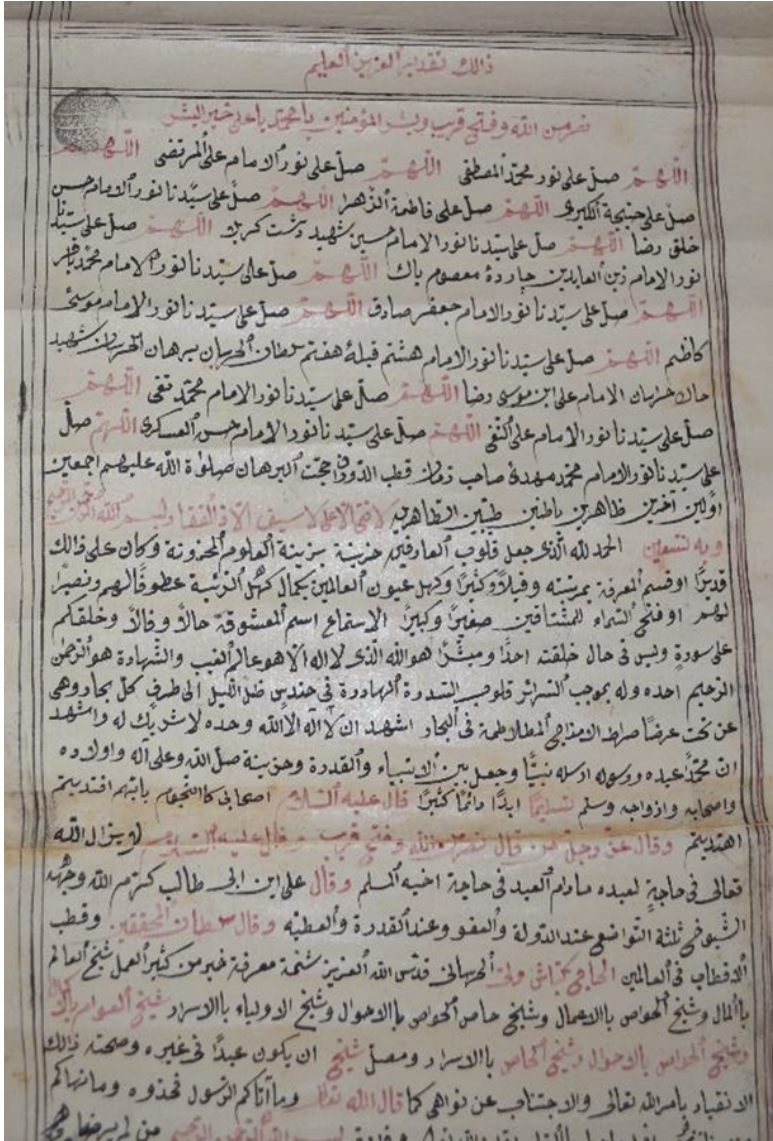 ذالك تقدير العزيز العليم
نصر من الله وفتح قريب وبشر المؤمنين يا محمد يا علي خير البشر
اللهم صل على نور محمد المصطفى اللهم صل على نور الامام على المرتضى اللهم
صل على خديجة الكبرى اللهم صل على فاطمة الزهرا اللهم صل على سيدنا نور الامام حسن
خلق رضا اللهم صل على سيدنا نور الامام حسين شهيد دشت كربلا اللهم صل على سيدنا
نور الامام زين العابدين چاردة معصوم باك اللهم صل على سيدنا نور الامام محمد باقر
اللهم صل على سيدنا نور الامام جعفر صادق اللهم صل على سيدنا نور الامام موسى
كاظم اللهم صل على سيدنا نور الامام هشتم قبلۀ هفتم سلطان برهان شهيد
الامام على ابن موسى رضا اللهم صل على سيدنا نور الامام محمد تقى اللهم
صل على سيدنا نور الامام على النقى اللهم صل على سيدنا نور الامام حسن العسكرى اللهم صل
على سيدنا نور الامام محمد مهدى صاحب زمان قطب حجت البرهان صلوة الله عليهم اجمعين
اولين آخرين ظاهرين باطنين طيبين الطاهرين لا فتى الا على لا سيف الا ذو الفقار بسم الله الرحمن الرحيم
وبه نستعين الحمد لله الذى جعل قلوب العارفين خزينة بزينة العلوم المخزونة وكان على ذالك
قديرا او قسم المعرفة بمرتبته وقيلا وكثيرا وكهل عيون العالمين بكمال كهل عطوفا لهم ونصيرا
لهم او فتح السماء للمشتاقين صغيرا وكبيرا الاستماع اسم المعشوقة حالا وقالا وخلقكم
على سورة وليس فى حال خلقته احدا هو الله الذى لا اله الا هو عالم الغيب والشهادة هو الرحمن
الرحيم احده وله بموجب السرائر قلوب فى حندس الليل الى طرف كل بحار وهى
عن تحت عرضا صراط المطلاطمة فى البحار اشهد ان لا اله الا الله وحده لا شريك له واشهد
ان محمدا عبده ورسوله ارسله نبيا وجعل بين الانبياء والقدرة وخزينة صل الله وعلى آله واولاده
واصحابه وازواجه وسلم تسليما ابدا دائما كثيرا قال عليه السلام اصحابى كالنجوم بايهم اقتديتم
اهتديتم وقال عز وجل من قال نصر من الله وفتح قريب وقال عليه السلام لا يزال الله
تعالى فى حاجة لعبده مادام العبد فى حاجة اخيه المسلم وقال على ابن ابى طالب كرم الله وجهه
الشيوخ ثلثة التواضع عند الدولة والعفو وعند القدرة والعطيه وقال سلطان المحققين وقطب
الاقطاب فى العالمين الحاجى بكتاش ولى قدس الله العزيز شمة معرفة خير من كثير العمل شيخ العالم
باالمال وشيخ الخواص باالاعمال وشيخ خاص الخواص باالاحوال وشيخ الاولياء باالاسرار شيخ العوام
وشيخ الخواص بالاحوال وشيخ الخاص باالاسرار ومصل شيخ ان يكون عبدا فى غيره وصحته ذالك
الانقياد بامر الله تعالى والاجتناب عن نواهى كما قال الله تعالى وما آتاكم الرسول فخذوه وما نهاكم